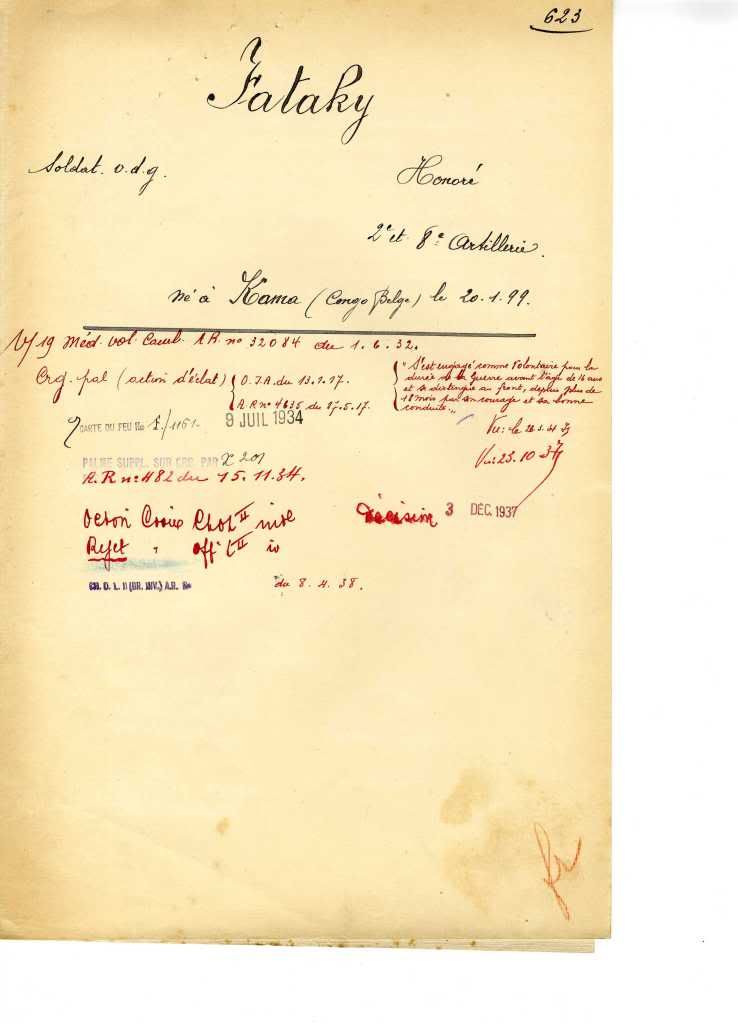 623
Fataky
Soldat. v.d.g. Honoré
2e et 8e Artillerie.
né à Kama (Congo Belge) le 20.1.99.
V/19 Méd. vol. Comb. A.R. no 32084 du 1.6.32.
Crg. pal (action d'éclat) O.J.A. du 13.7.17.
A.R. no 4635 du 27.5.17.
"S'est engagé comme Volontaire pour la
durée de la Guerre avant l'âge de 16 ans
et s'est distingué au front, depuis plus de
18 mois par son courage et sa bonne
conduite."
CARTE DU FEU No F/1161. 9 JUIL 1934
Vu: le
Vu: 23.10.37
PALME SUPPL. SUR CRG. PAR
A.R. no 482 du 15.11.34.
Octroi Croix Chol II
Décision 3 DÉC. 1937
Rejet " Off L II
CH. O. L. II (BR. INV.) A.R. No du 8.4.38.